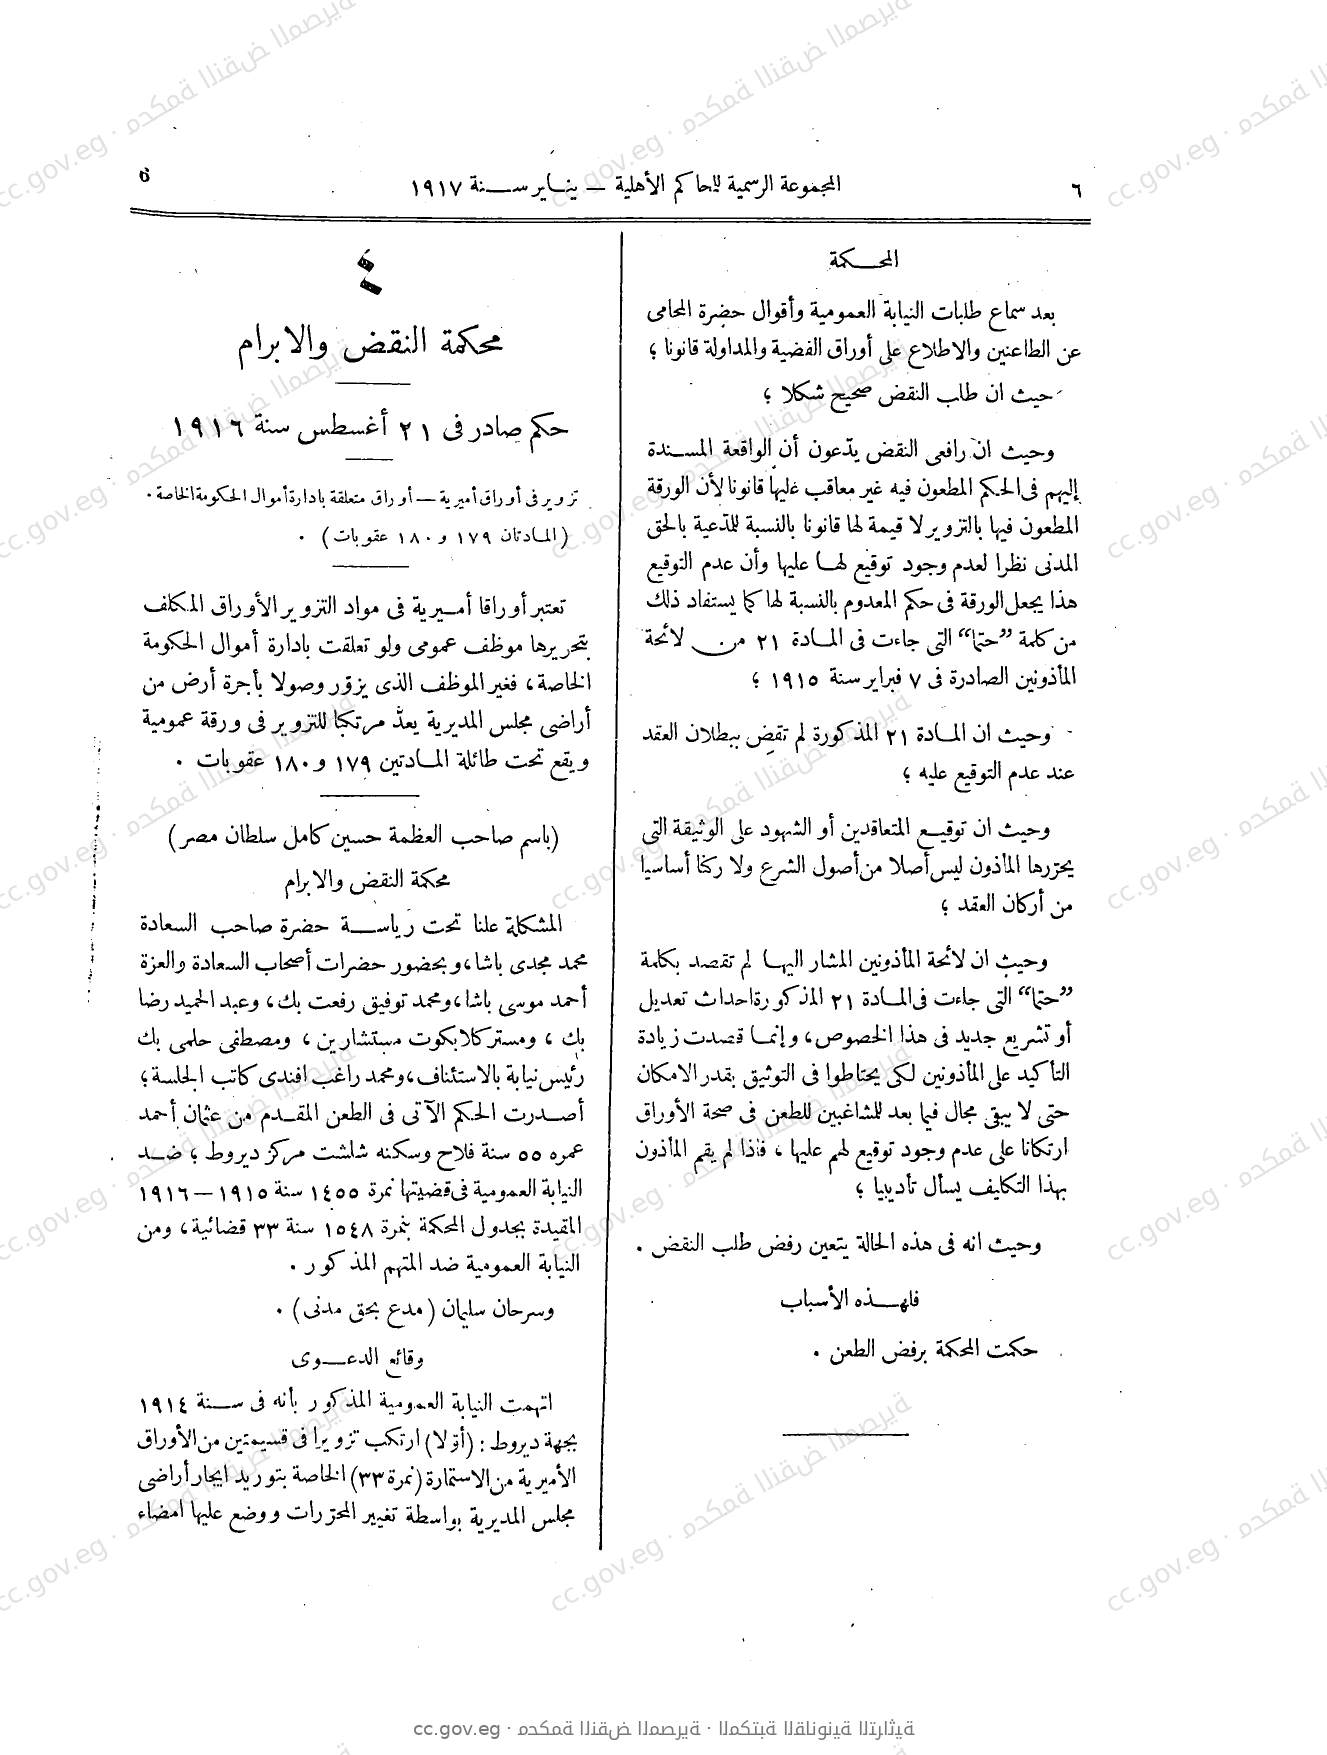 ٦
المجموعة الرسمية للمحاكم الأهلية — يناير سنة ١٩١٧
6
المحكمة
بعد سماع طلبات النيابة العمومية وأقوال حضرة المحامى
عن الطاعنين والاطلاع على أوراق القضية والمداولة قانونا ؛
حيث ان طلب النقض صحيح شكلا ؛
وحيث ان رافعى النقض يدّعون أن الواقعة المسندة
إليهم فى الحكم المطعون فيه غير معاقب عليها قانونا لأن الورقة
المطعون فيها بالتزوير لا قيمة لها قانونا بالنسبة للمدّعية بالحق
المدنى نظرا لعدم وجود توقيع لها عليها وأن عدم التوقيع
هذا يجعل الورقة فى حكم المعدوم بالنسبة لها كما يستفاد ذلك
من كلمة ”حتما“ التى جاءت فى المادة ٢١ من لائحة
المأذونين الصادرة فى ٧ فبراير سنة ١٩١٥ ؛
وحيث ان المادة ٢١ المذكورة لم تقض ببطلان العقد
عند عدم التوقيع عليه ؛
وحيث ان توقيع المتعاقدين أو الشهود على الوثيقة التى
يحررها المأذون ليس أصلا من أصول الشرع ولا ركنا أساسيا
من أركان العقد ؛
وحيث ان لائحة المأذونين المشار اليها لم تقصد بكلمة
”حتما“ التى جاءت فى المادة ٢١ المذكورة احداث تعديل
أو تشريع جديد فى هذا الخصوص، وإنما قصدت زيادة
التأكيد على المأذونين لكى يحتاطوا فى التوثيق بقدر الامكان
حتى لا يبقى مجال فيما بعد للمشاغبين للطعن فى صحة الأوراق
ارتكانا على عدم وجود توقيع لهم عليها ، فاذا لم يقم المأذون
بهذا التكليف يسأل تأديبيا ؛
وحيث انه فى هذه الحالة يتعين رفض طلب النقض .
فلهذه الأسباب
حكمت المحكمة برفض الطعن .
٤
محكمة النقض والابرام
حكم صادر فى ٢١ أغسطس سنة ١٩١٦
تزوير فى أوراق أميرية — أوراق متعلقة بادارة أموال الحكومة الخاصة .
(المادتان ١٧٩ و ١٨٠ عقوبات) .
تعتبر أوراقا أميرية فى مواد التزوير الأوراق المكلف
بتحريرها موظف عمومى ولو تعلقت بادارة أموال الحكومة
الخاصة، فغير الموظف الذى يزوّر وصولا بأجرة أرض من
أراضى مجلس المديرية يعدّ مرتكبا للتزوير فى ورقة عمومية
ويقع تحت طائلة المادتين ١٧٩ و ١٨٠ عقوبات .
(باسم صاحب العظمة حسين كامل سلطان مصر)
محكمة النقض والابرام
المشكلة علنا تحت رياسة حضرة صاحب السعادة
محمد مجدى باشا، وبحضور حضرات أصحاب السعادة والعزة
أحمد موسى باشا، ومحمد توفيق رفعت بك، وعبد الحميد رضا
بك ، ومستر كلايكوت مستشارين ، ومصطفى حلمى بك
رئيس نيابة بالاستئناف، ومحمد راغب افندى كاتب الجلسة؛
أصدرت الحكم الآتى فى الطعن المقدم من عثمان أحمد
عمره ٥٥ سنة فلاح وسكنه شلشت مركز ديروط ؛ ضد
النيابة العمومية فى قضيتها نمرة ١٤٥٥ سنة ١٩١٥ — ١٩١٦
المقيدة بجدول المحكمة بنمرة ١٥٤٨ سنة ٣٣ قضائية، ومن
النيابة العمومية ضد المتهم المذكور .
وسرحان سليمان (مدع بحق مدنى) .
وقائع الدعوى
اتهمت النيابة العمومية المذكور بأنه فى سنة ١٩١٤
بجهة ديروط : (أوّلا) ارتكب تزويرا فى قسيمتين من الأوراق
الأميرية من الاستمارة (نمرة ٣٣) الخاصة بتوريد ايجار أراضى
مجلس المديرية بواسطة تغيير المحررات ووضع عليها امضاء
cc.gov.eg · محكمة النقض المصرية · المكتبة القانونية التراثية